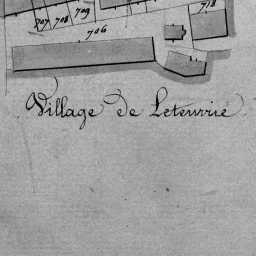 718
707 708 709
706
Village de Leteurrie